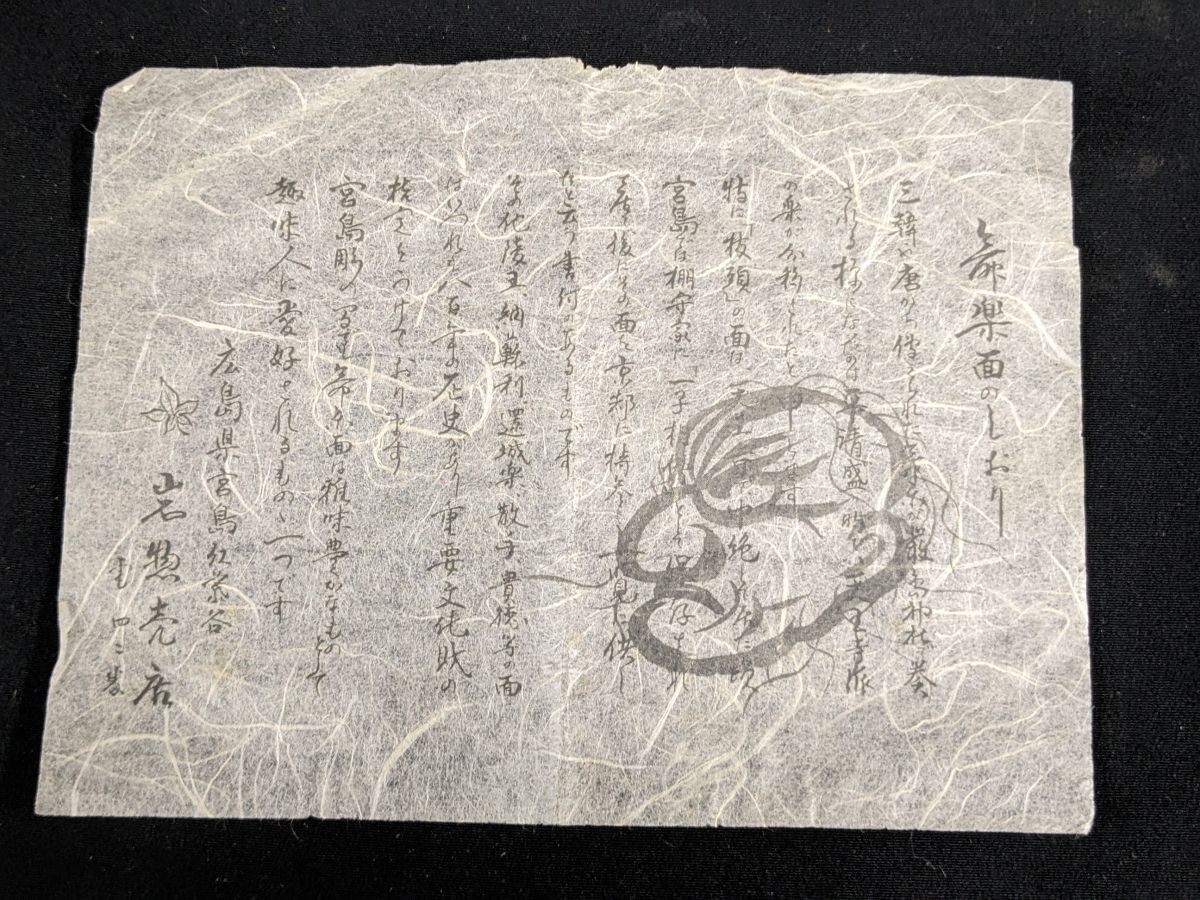 舞楽面のしおり
三韓や唐から伝えられた楽が厳島神社で奏
される様になったのは平清盛の時で天王寺派
の楽が分移されたと申します
特に「抜頭」の面は
宮島では棚守家に「一子相伝」として保存され
其後にその面を京都に持参し一見に供し
たと云う書付のあるものです
その他陵王、納蘇利、還城楽、散手、貴徳等の面
はいづれも八百年の歴史があり重要文化財の
指定をうけております
宮島彫の写も舞楽面は雅味豊かなものとして
趣味人に愛好されるものの一つです
広島県宮島紅葉谷
岩惣売店